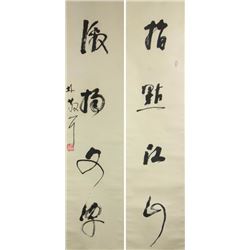 指點江山
激揚文字
林散耳